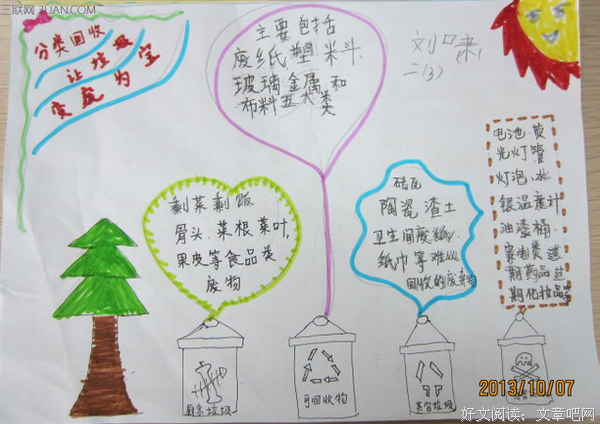 三联网 3LIAN.COM
分类回收
让垃圾
变废为宝
主要包括
废纸 塑料
玻璃 金属 和
布料五大类
二(3)
剩菜剩饭
骨头、菜根菜叶,
果皮等食品类
废物
砖瓦
陶瓷 渣土
卫生间废纸、
纸巾等难以
回收的废弃物
电池、荧
光灯管
灯泡、水
银温度计
油漆桶、
家电类 过
期药品 过
期化妆品
厨余垃圾
可回收物
其它垃圾
2013/10/07
好文阅读:文章吧网